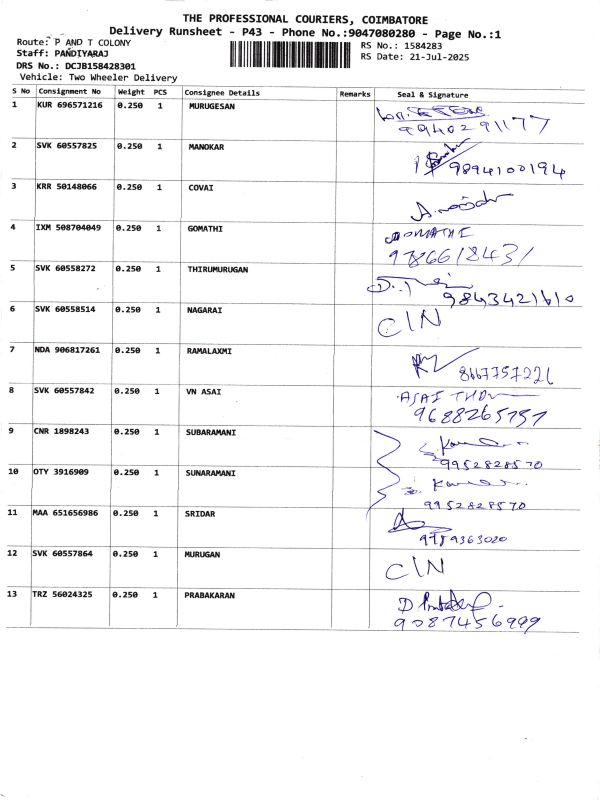 THE PROFESSIONAL COURIERS, COIMBATORE
Delivery Runsheet - P43 - Phone No.:9047080280 - Page No.:1
Route: P AND T COLONY
RS No.: 1584283
Staff: PANDIYARAJ
RS Date: 21-Jul-2025
DRS No.: DCJB158428301
Vehicle: Two Wheeler Delivery
S No Consignment No Weight PCS Consignee Details Remarks Seal & Signature
1 KUR 696571216 0.250 1 MURUGESAN
9940291177
2 SVK 60557825 0.250 1 MANOKAR
9894100194
3 KRR 50148066 0.250 1 COVAI
4 IXM 508704049 0.250 1 GOMATHI GOMATHI
9786618431
5 SVK 60558272 0.250 1 THIRUMURUGAN
9843421610
6 SVK 60558514 0.250 1 NAGARAI C/N
7 NDA 906817261 0.250 1 RAMALAXMI
8667757221
8 SVK 60557842 0.250 1 VN ASAI ASAI
9688265757
9 CNR 1898243 0.250 1 SUBARAMANI
9952828570
10 OTY 3916909 0.250 1 SUNARAMANI
9952828570
11 MAA 651656986 0.250 1 SRIDAR
9789363020
12 SVK 60557864 0.250 1 MURUGAN C/N
13 TRZ 56024325 0.250 1 PRABAKARAN
9087456999